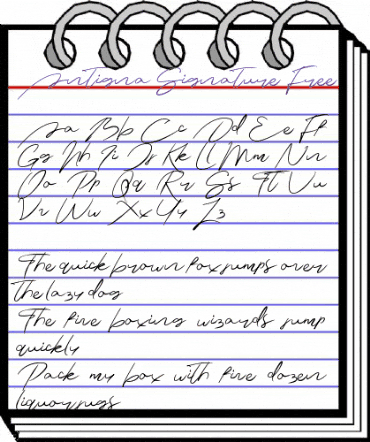 Antigna Signature Free
Aa Bb Cc Dd Ee Ff
Gg Hh Ii Jj Kk Ll Mm Nn
Oo Pp Qq Rr Ss Tt Uu
Vv Ww Xx Yy Zz
The quick brown fox jumps over
the lazy dog
The five boxing wizards jump
quickly
Pack my box with five dozen
liquor jugs